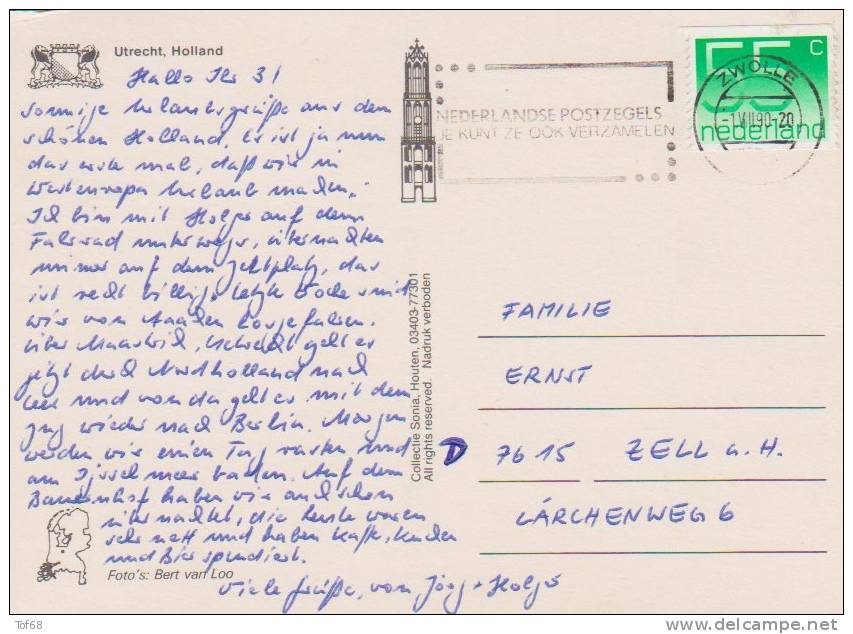 Utrecht, Holland
Hallo Ihr 3!
sonnige Urlaubsgrüße aus dem
schönen Holland. Es ist ja nun
das erste mal, daß wir in
Westeuropa Urlaub machen.
Ich bin mit Holger auf dem
Fahrrad unterwegs, übernachten
immer auf dem Zeltplatz, das
ist recht billig. Letzte Woche sind
wir von Aachen losgefahren.
über Maastricht, Utrecht geht es
jetzt durch Nordholland nach
Leer und von da geht es mit dem
Zug wieder nach Berlin. Morgen
werden wir einen Tag rasten und
am Ijsselmeer baden. Auf dem
Bauernhof haben wir auch schon
übernachtet, die Leute waren
sehr nett und haben Kaffe, Kuchen
und Bier spendiert.
Viele Grüße, von Jörg + Holger
Foto's: Bert van Loo
Collectie Sonia, Houten, 03403-77301
All rights reserved. Nadruk verboden
NEDERLANDSE POSTZEGELS
JE KUNT ZE OOK VERZAMELEN
ZWOLLE
-1.VIII.90-20
55 c
nederland
FAMILIE
ERNST
D 7615 ZELL a. H.
LÄRCHENWEG 6
Tof68
delcampe.net